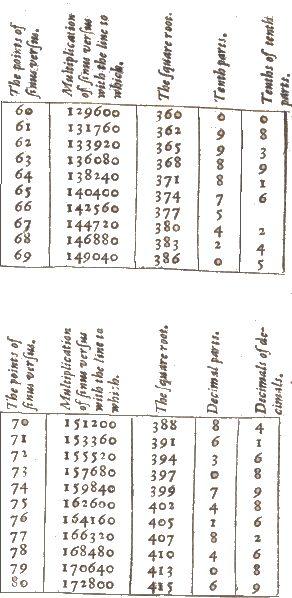 The points of
sinus versus.
Multiplication
of sinus versus
with the line to
which.
The square root.
Tenth parts.
Tenths of tenth
parts.
60 129600 360 0 0
61 131760 362 9 8
62 133920 365 9 3
63 136080 368 8 9
64 138240 371 8 1
65 140400 374 7 6
66 142560 377 5
67 144720 380 4 2
68 146880 383 2 4
69 149040 386 0 5
The points of
sinus versus.
Multiplication
of sinus versus
with the line to
which.
The square root.
Decimal parts.
Decimals of de-
cimals.
70 151200 388 8 4
71 153360 391 6 1
72 155520 394 3 6
73 157680 397 0 8
74 159840 399 7 9
75 162600 402 4 8
76 164160 405 1 6
77 166320 407 8 2
78 168480 410 4 6
79 170640 413 0 8
80 172800 415 6 9